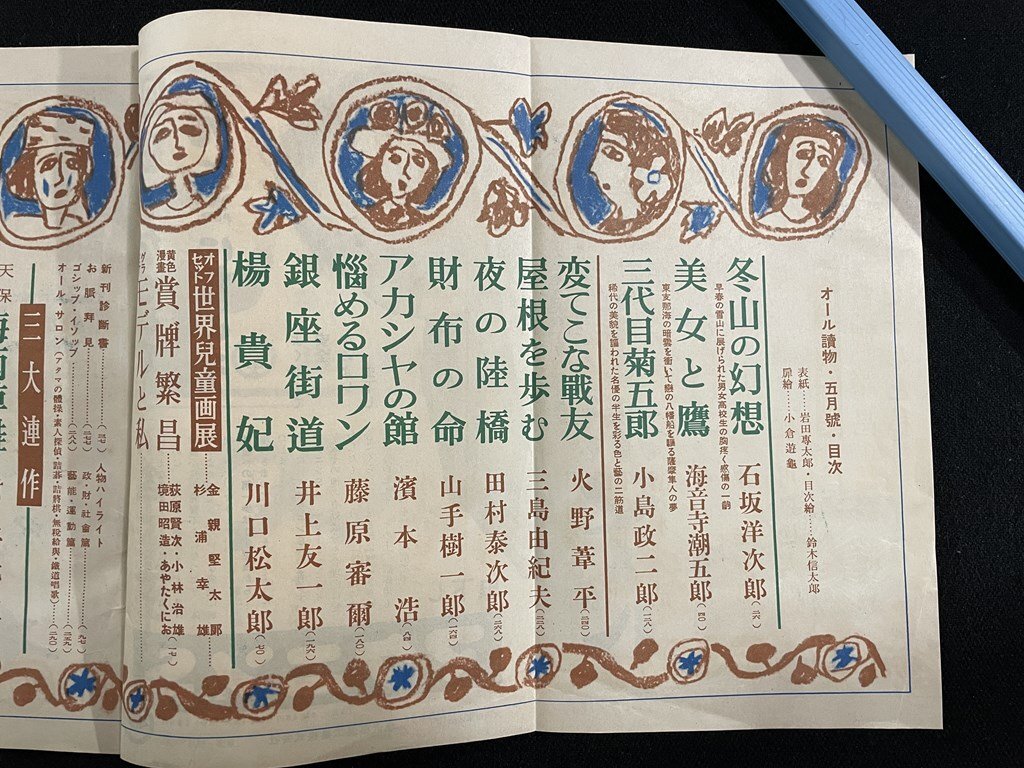 オール讀物・五月號・目次
表紙……岩田專太郎・目次繪……鈴木信太郎
扉繪……小倉遊龜
冬山の幻想 石坂洋次郎(二六)
早春の雪山に展げられた男女高校生の胸疼く感傷の一齣
美女と鷹 海音寺潮五郎(四〇)
東支那海の暗雲を衝いて
三代目菊五郎 小島政二郎(二一八)
稀代の美貌を謳われた名優の半生を彩る色と藝の二筋道
変てこな戰友 火野葦平(二四〇)
屋根を歩む 三島由紀夫(二二八)
夜の陸橋 田村泰次郎(二六八)
財布の命 山手樹一郎(一六四)
アカシヤの館 濱本浩(八四)
悩める口ワン 藤原審爾(一八〇)
銀座街道 井上友一郎(一九六)
楊貴妃 川口松太郎(七〇)
オフセット 世界兒童画展…… 金親堅太郎 杉浦幸雄
黄色漫畫 賞牌繁昌…… 荻原賢次・小林治雄 境田昭造・あやたくにお(一七)
グラ モデルと私
新刊診断書 人物ハイライト
お脈拝見 政・財・社會篇(九七)
ゴシップ・イソップ 藝能・運動篇(二五九)
オール・サロン(アタマの體操・素人探偵・詰碁・詰將棋・無税給與・鐵道唱歌)(二九〇)
三大連作
天保